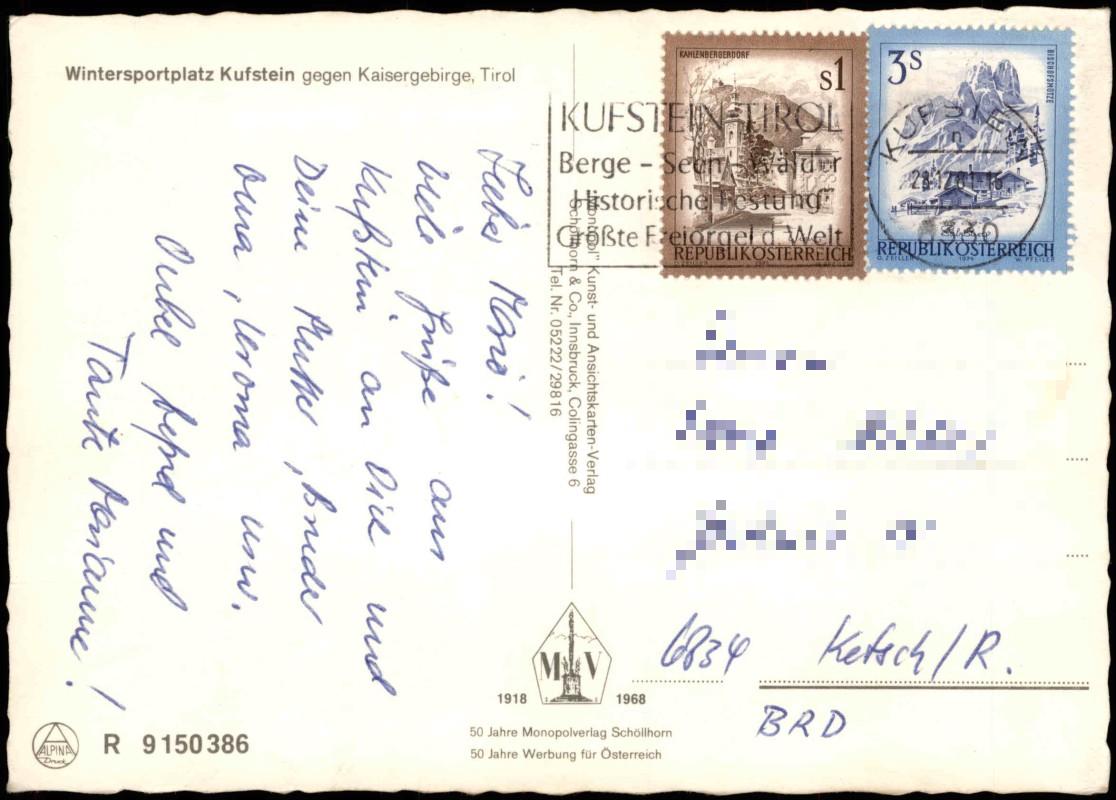 Wintersportplatz Kufstein gegen Kaisergebirge, Tirol
Lieber Mario!
Viele Grüße aus
Kufstein an Dich und
Deine Mutter, Bruder
Oma, Uroma usw.
Onkel Bernd und
Tante Marianne!
KUFSTEIN-TIROL
Berge - Seen - Wälder
"Historische Festung"
Größte Freiorgel d. Welt
KAHLENBERGERDORF
s1
REPUBLIK ÖSTERREICH
O. ZEILLER
3s
BISCHOFSMÜTZE
REPUBLIK ÖSTERREICH
O. ZEILLER 1974 W. PFEILER
KUFSTEIN
Kunst- und Ansichtskarten-Verlag
Schöllhorn & Co., Innsbruck, Colingasse 6
Tel. Nr. 05222/29816
6834 Ketsch/R.
BRD
M V
1918 1968
50 Jahre Monopolverlag Schöllhorn
50 Jahre Werbung für Österreich
ALPINA
Druck
R 9150386